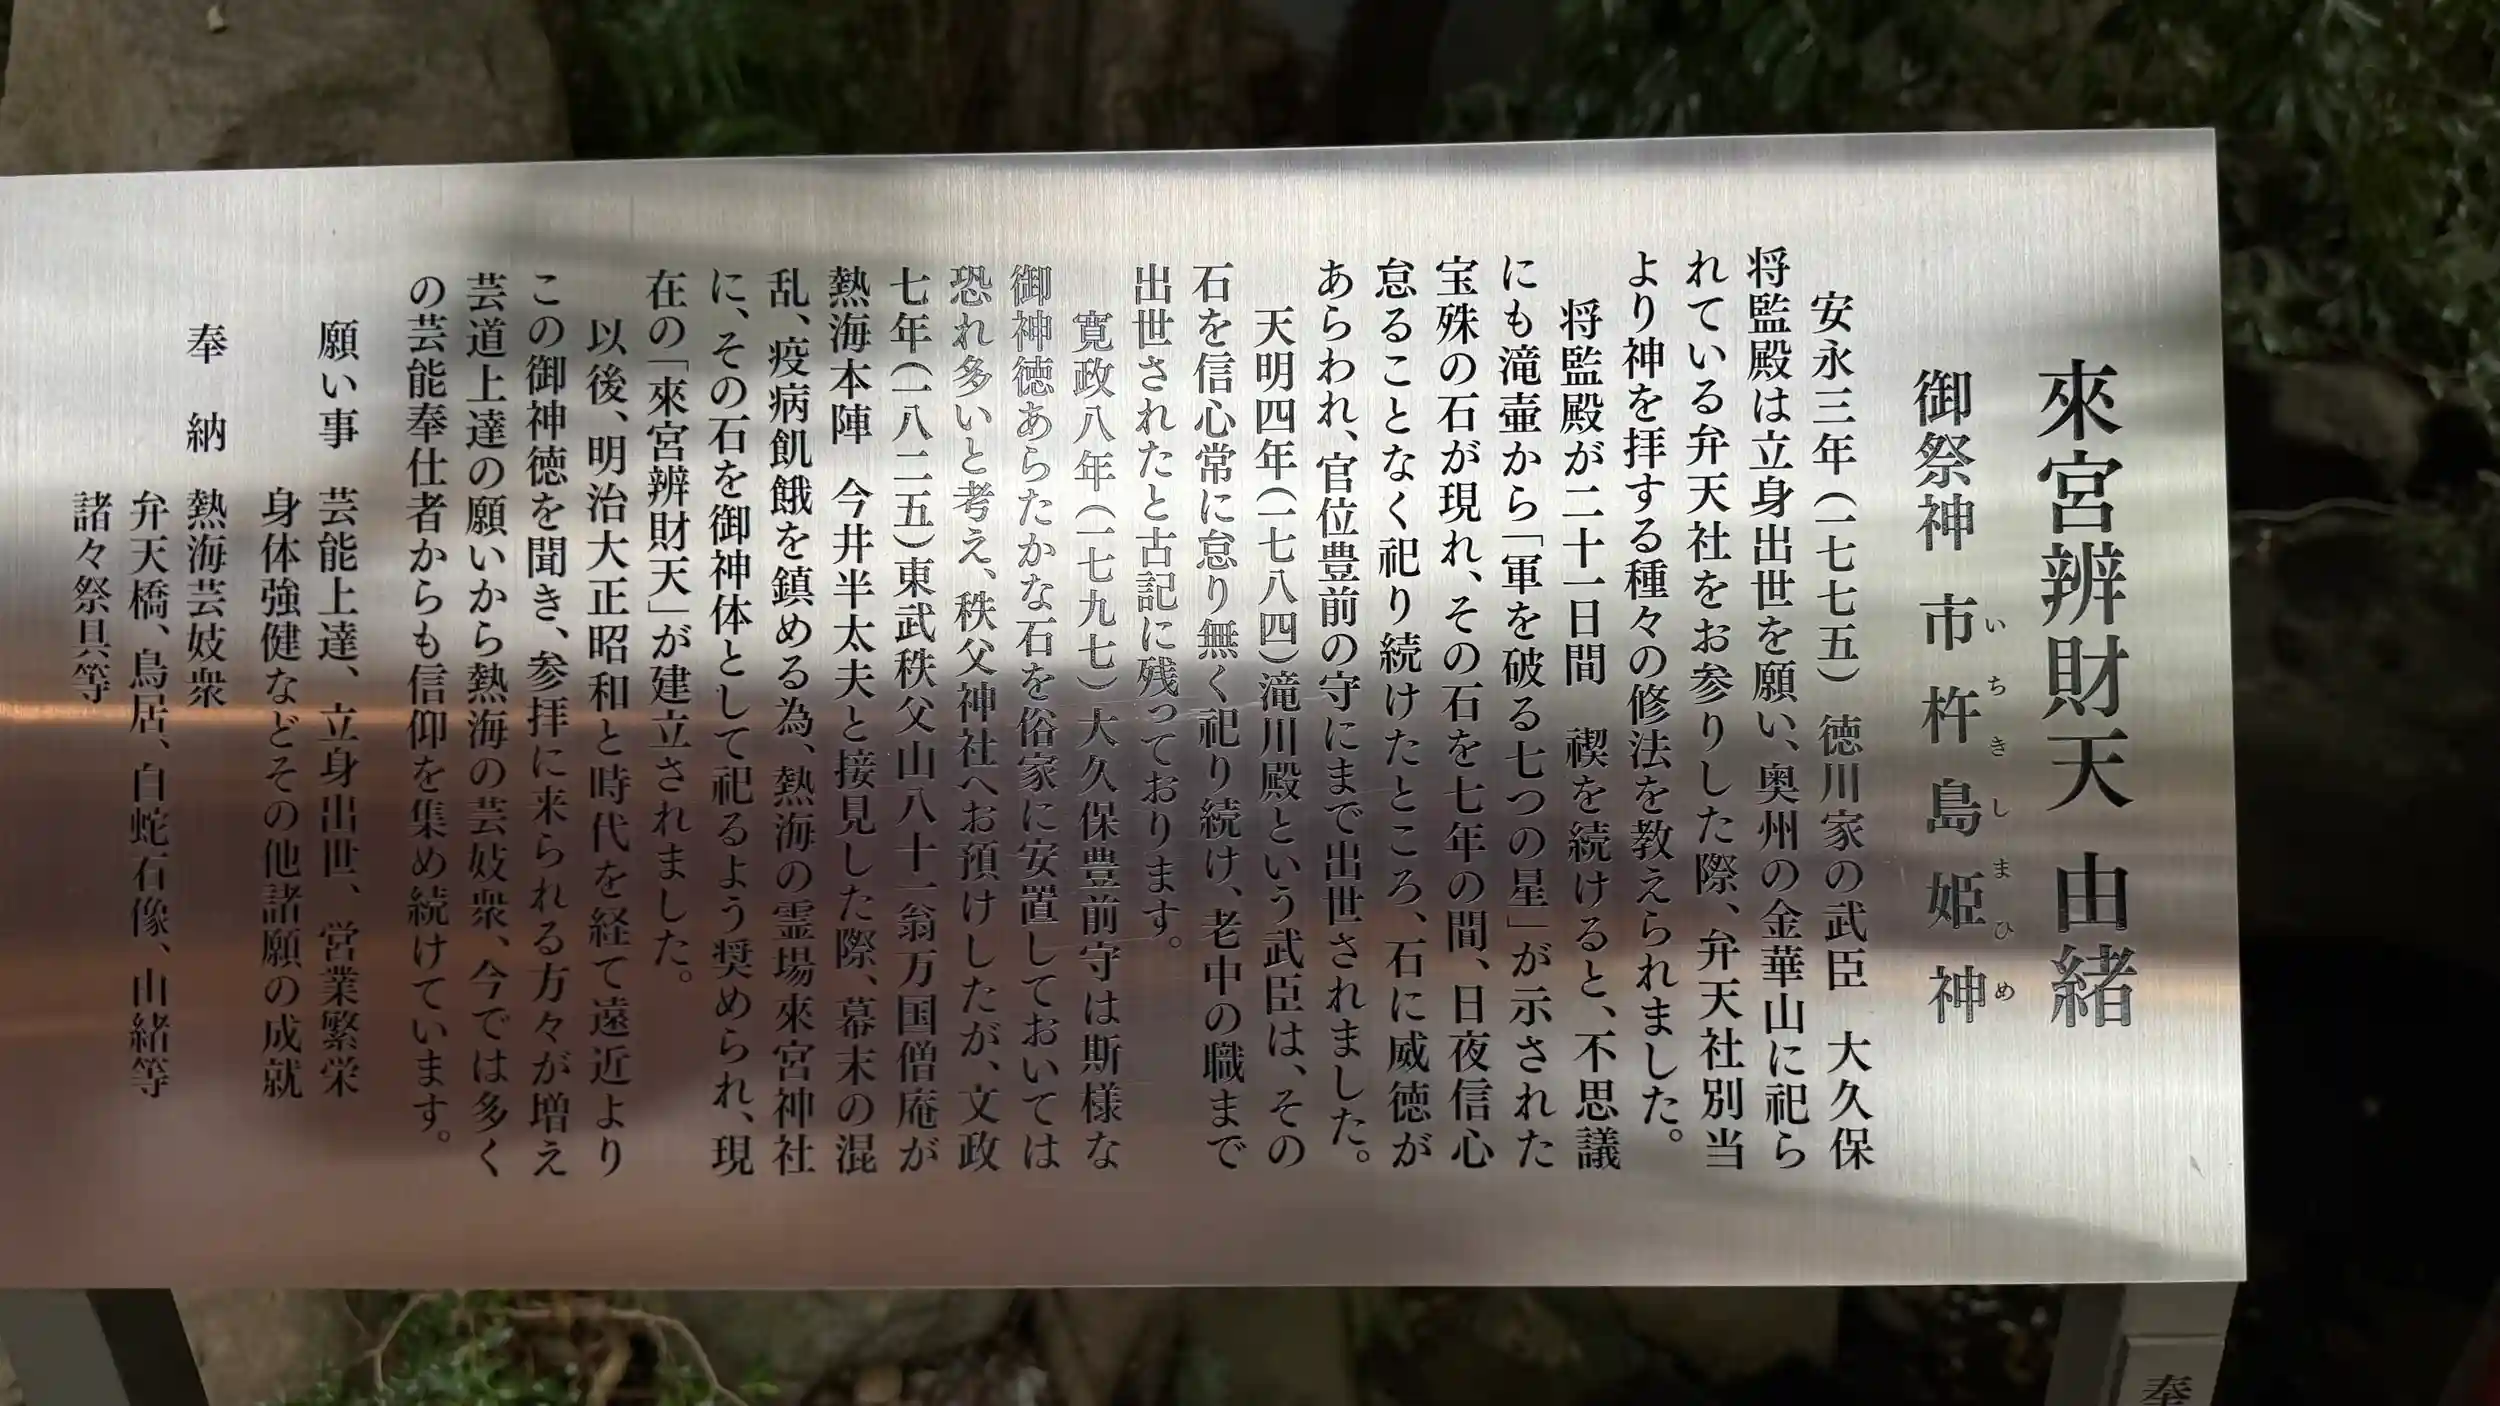 來宮辨財天 由緒
御祭神 市杵島姫神
いちきしまひめ
安永三年（一七七五）徳川家の武臣 大久保
将監殿は立身出世を願い、奥州の金華山に祀ら
れている弁天社をお参りした際、弁天社別当
より神を拝する種々の修法を教えられました。
将監殿が二十一日間 禊を続けると、不思議
にも滝壷から「軍を破る七つの星」が示された
宝殊の石が現れ、その石を七年の間、日夜信心
怠ることなく祀り続けたところ、石に威徳が
あらわれ、官位豊前の守にまで出世されました。
天明四年（一七八四）滝川殿という武臣は、その
石を信心常に怠り無く祀り続け、老中の職まで
出世されたと古記に残っております。
寛政八年（一七九七）大久保豊前守は斯様な
御神徳あらたかな石を俗家に安置しておいては
恐れ多いと考え、秩父神社へお預けしたが、文政
七年（一八二五）東武秩父山八十一翁万国僧庵が
熱海本陣 今井半太夫と接見した際、幕末の混
乱、疫病飢餓を鎮める為、熱海の霊場來宮神社
に、その石を御神体として祀るよう奨められ、現
在の「來宮辨財天」が建立されました。
以後、明治大正昭和と時代を経て遠近より
この御神徳を聞き、参拝に来られる方々が増え
芸道上達の願いから熱海の芸妓衆、今では多く
の芸能奉仕者からも信仰を集め続けています。
願い事 芸能上達、立身出世、営業繁栄
身体強健などその他諸願の成就
奉 納 熱海芸妓衆
弁天橋、鳥居、白蛇石像、由緒等
諸々祭具等
奉